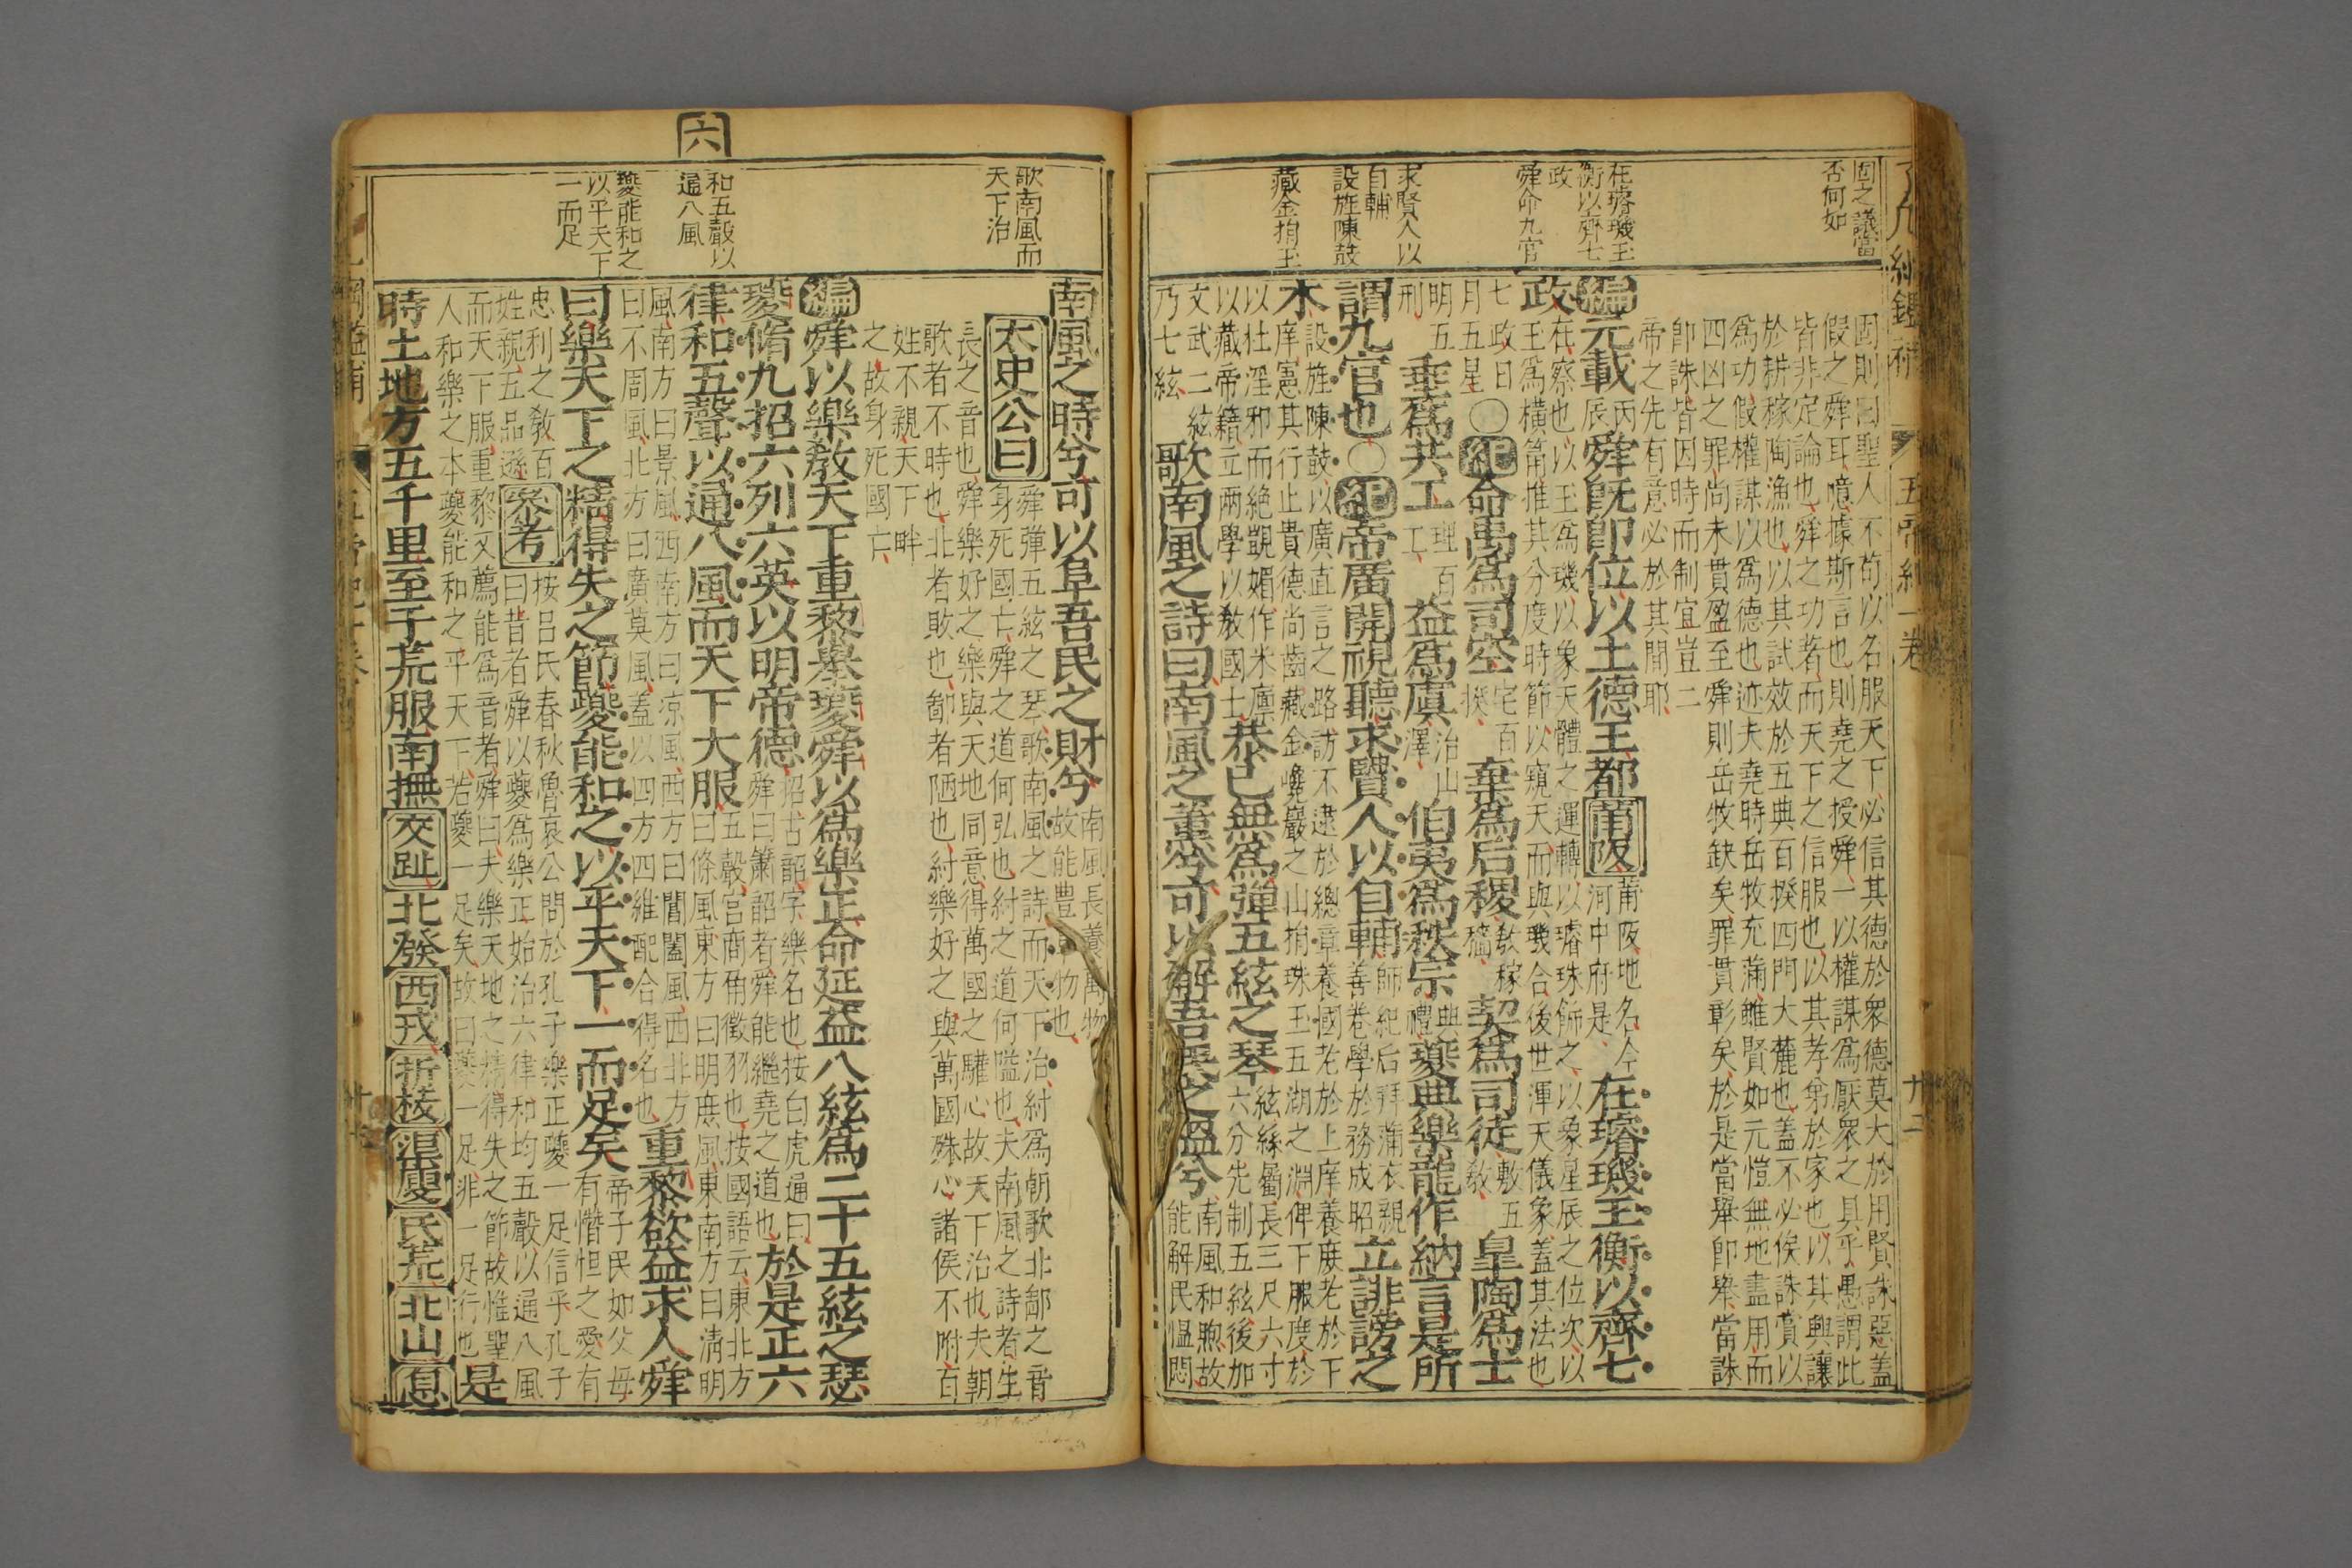 固之議當
否何如
在璿璣玉
衡以齊七
政
舜命九官
求賢人以
自輔
設旌陳鼓
藏金捐玉
固則曰聖人不苟以名服天下必信其德於衆德莫大於用賢誅惡蓋
假之舜耳噫據斯言也則堯之授舜一以權謀爲厭衆之具乎愚謂此
皆非定論也舜之功著而天下之信服也以其孝弟於家也以其興讓
於耕稼陶漁也以其試效於五典百揆四門大麓也蓋不必俟誅賞以
爲功假權謀以爲德也迹夫堯時岳牧充滿雖賢如元愷無地盡用而
四凶之罪尚未貫盈至舜則岳牧缺矣罪貫彰矣於是當舉卽舉當誅
卽誅皆因時而制宜豈二
帝之先有意必於其間耶
編元載丙辰舜旣卽位以土德王都蒲阪蒲阪地名今河中府是在璿璣玉衡以齊七
政在察也以玉爲璣以象天體之運轉以璿珠飾之以象星辰之位次以玉爲橫筩推其分度時節以窺天而與璣合後世渾天儀象蓋其法也
七政日月五星〇紀命禹爲司空宅百揆棄爲后稷敎稼穡契爲司徒敷五敎皐陶爲士
明五刑垂爲共工理百工益爲虞治山澤伯夷爲秩宗典禮夔典樂龍作納言是所
謂九官也〇紀帝廣開視聽求賢人以自輔師紀后拜蒲衣親善卷學於務成昭立誹謗之
木設旌陳鼓以廣直言之路訪不逮於總章養國老於上庠養庶老於下庠憲其行止貴德尚齒藏金巉巖之山捐珠玉五湖之淵俾下服度於
以杜淫邪而絶覬媚作米廩以藏帝籍立兩學以敎國士恭己無爲彈五絃之琴絃絲屬長三尺六寸六分先制五絃後加
文武二絃乃七絃歌南風之詩曰南風之薰兮可以解吾民之愠兮南風和煦故能解民愠悶
歌南風而
天下治
和五聲以
通八風
夔能和之
以平天下
一而足
六
南風之時兮可以阜吾民之財兮南風長養萬物故能豊物也
太史公曰舜彈五絃之琴歌南風之詩而天下治紂爲朝歌北鄙之音身死國亡舜之道何弘也紂之道何隘也夫南風之詩者生
長之音也舜樂好之樂與天地同意得萬國之驩心故天下治也夫朝
歌者不時也北者敗也鄙者陋也紂樂好之與萬國殊心諸侯不附百
姓不親天下畔
之故身死國亡
編舜以樂敎天下重黎舉夔舜以爲樂正命延益八絃爲二十五絃之瑟
夔脩九招六列六英以明帝德招古韶字樂名也按白虎通曰舜曰簫韶者舜能繼堯之道也於是正六
律和五聲以通八風而天下大服五聲宮商角徵羽也按國語云東北方曰條風東方曰明庶風東南方曰淸明
風南方曰景風西南方曰凉風西方曰閶闔風西北方曰不周風北方曰廣莫風蓋以四方四維配合得名也重黎欲益求人舜
曰樂天下之精得失之節夔能和之以平天下一而足矣帝子民如父母有憯怛之愛有
忠利之敎百姓親五品遜參考按吕氏春秋魯哀公問於孔子樂正夔一足信乎孔子曰昔者舜以夔爲樂正始治六律和均五聲以通八風
而天下服重黎又薦能爲音者舜曰夫樂天地之精得失之節故惟聖人和樂之本夔能和之平天下若夔一足矣故曰夔一足非一足行也是
時土地方五千里至于荒服南撫交趾北發西戎析枝渠廋氏羌北山息